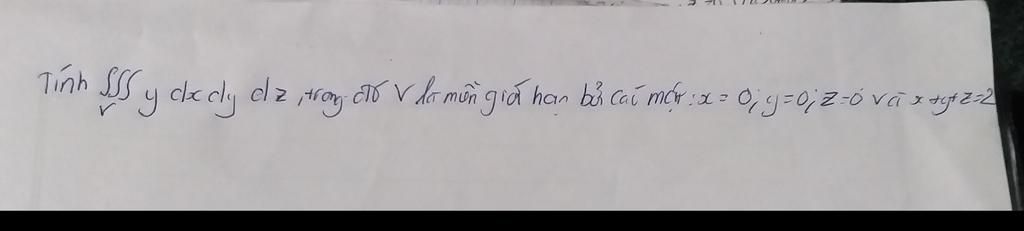 Tính ∭ y dx dy dz, trong đó V là miền giới hạn bởi các mặt: x = 0; y = 0; z = 0 và x + y + z = 2
V